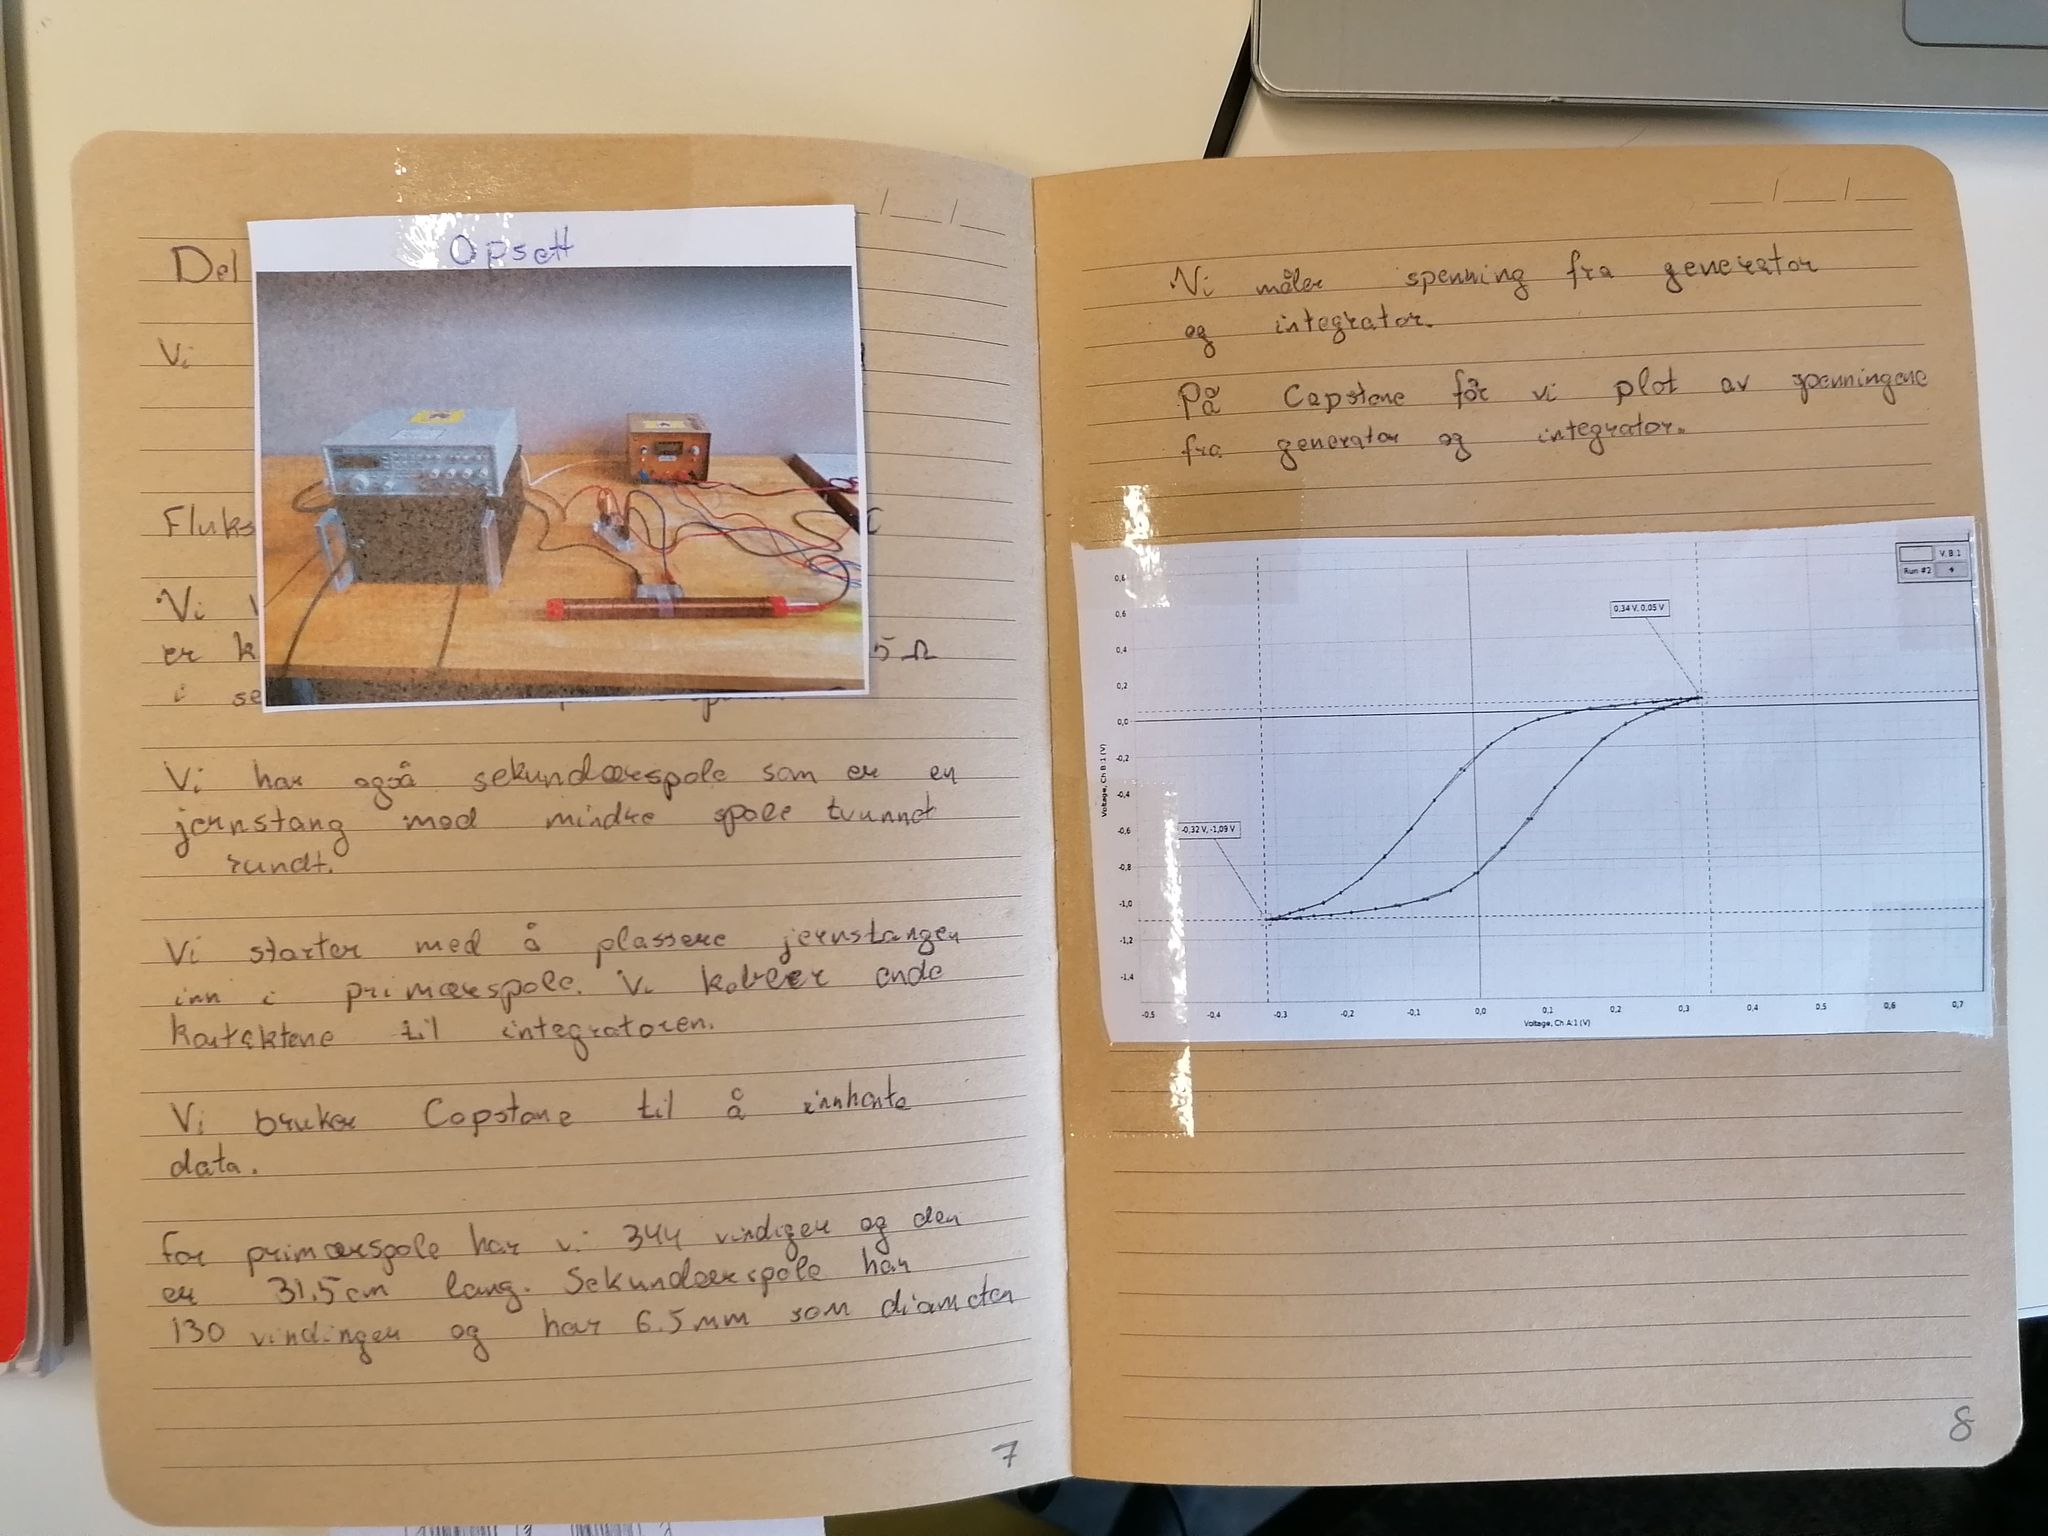 Opsett
Del
Vi
Fluks
Vi
er k 5 Ω
i se
Vi har også sekundærspole som er en
jernstang med mindre spole tvunnet
rundt.
Vi starter med å plassere jernstangen
inn i primærspole. Vi kobler ende
kontaktene til integratoren.
Vi bruker Capstone til å innhente
data.
For primærspole har vi 344 vindiger og den
er 31.5cm lang. Sekundærspole har
130 vindinger og har 6.5mm som diameter
7
Vi måler spenning fra generator
og integrator.
På Capstone får vi plot av spenningene
fra generator og integrator.
V, B:1
Run #2
0,34 V, 0,05 V
-0,32 V, -1,09 V
0,6
0,4
0,2
0,0
-0,2
-0,4
-0,6
-0,8
-1,0
-1,2
-1,4
Voltage, Ch B:1 (V)
-0,5 -0,4 -0,3 -0,2 -0,1 0,0 0,1 0,2 0,3 0,4 0,5 0,6 0,7
Voltage, Ch A:1 (V)
8